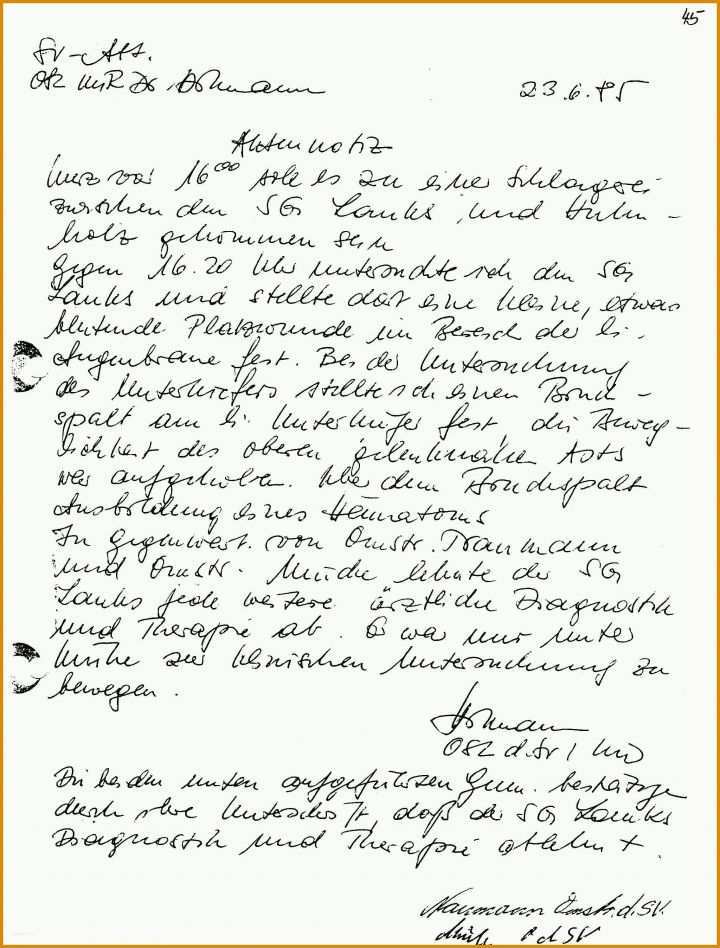 45
SV-Abt.
OSL MR Dr. Hohmann
23.6.85
Aktennotiz
Kurz vor 16⁰⁰ soll es zu einer Schlägerei
zwischen den SG Lauks und Huhn-
holz gekommen sein
Gegen 16.20 Uhr untersuchte ich den SG
Lauks und stellte dort eine kleine, etwas
blutende Platzwunde im Bereich der li.
Augenbraue fest. Bei der Untersuchung
des Unterkiefers stellte ich einen Bruch-
spalt am li. Unterkiefer fest, die Beweg-
lichkeit des oberen gelenknahen Asts
war aufgehoben. Über dem Bruchspalt
Ausbildung eines Hämatoms
In Gegenwart von Omstr. Traumann
und Omstr. lehnte der SG
Lauks jede weitere ärztliche Diagnostik
und Therapie ab. Er war nur unter
Mühe zur klinischen Untersuchung zu
bewegen.
Hohmann
OSL d. SV / MD
Die beiden unten aufgeführten Genn. bestätigen
durch ihre Unterschrift, daß der SG Lauks
Diagnostik und Therapie ablehnt.
Omstr. d. SV.
d SV